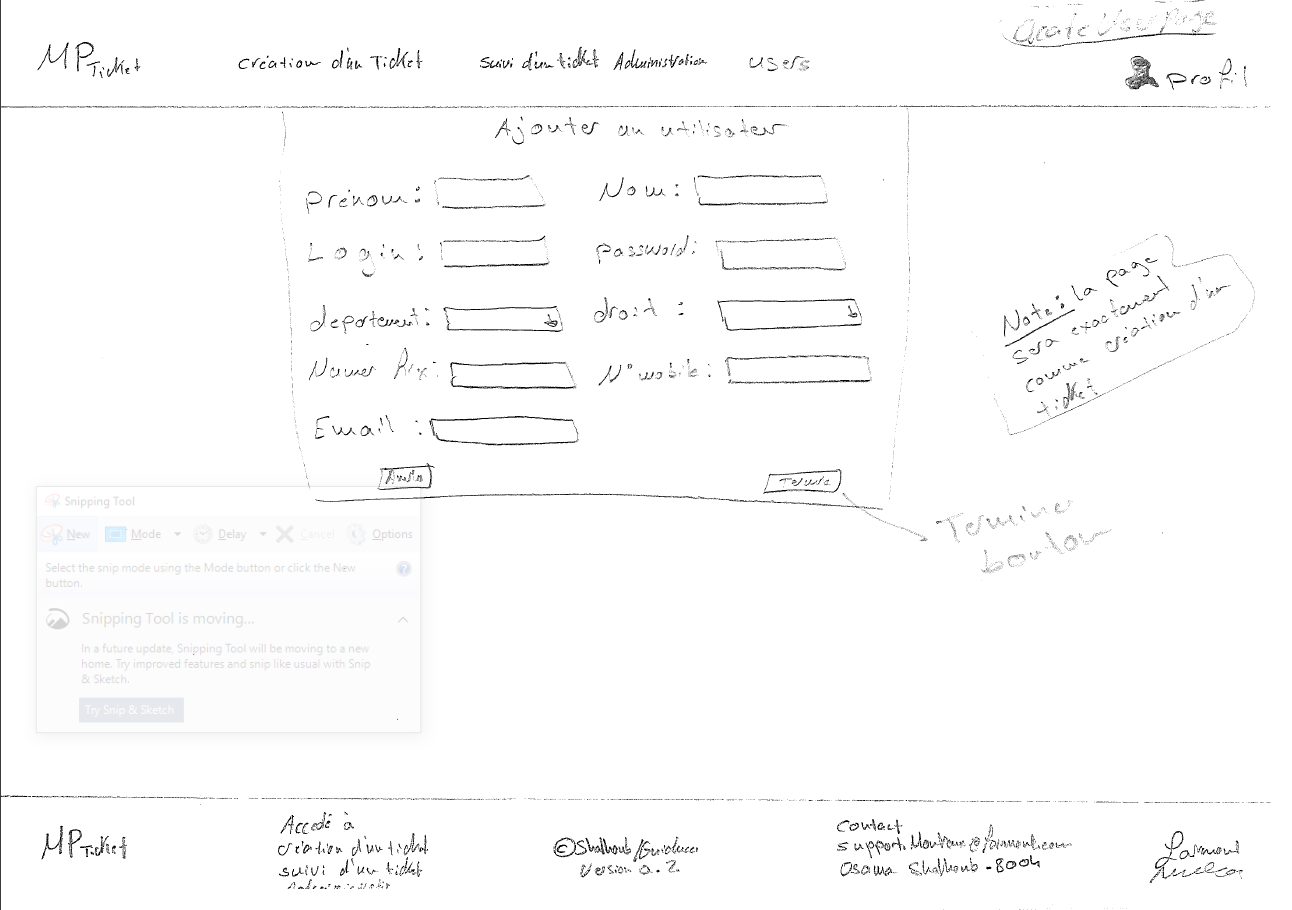 Create User Page
MP Ticket
Création d'un Ticket
suivi d'un ticket
Administration
users
profil
Ajouter un utilisateur
Prénom :
Nom :
Login :
password :
département :
droit :
N° mobile :
Email :
Note : la page
sera exactement
comme création d'un
ticket
Terminer
bouton
Snipping Tool
New
Mode
Delay
Cancel
Options
Select the snip mode using the Mode button or click the New
button.
Snipping Tool is moving...
In a future update, Snipping Tool will be moving to a new
home. Try improved features and snip like usual with Snip
& Sketch.
Try Snip & Sketch
MP Ticket
Accedé à
création d'un ticket
suivi d'un ticket
©Shalhoub/Guiducci
Version 0.2
Contact
Osama Shalhoub - 8004